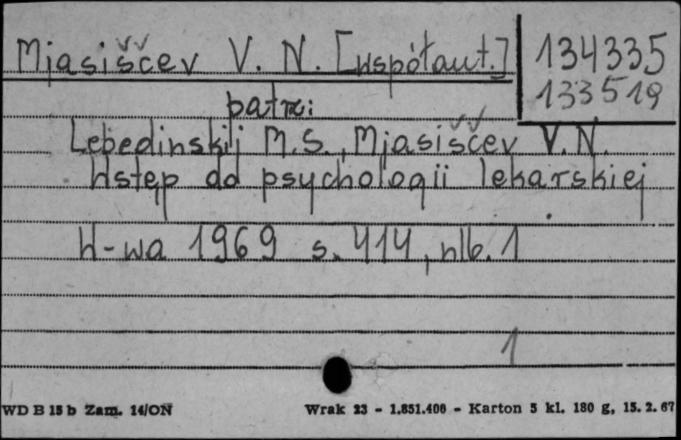 Mjasiščev V. N. [współaut.]
134335
133519
patrz:
Lebedinskij M. S., Mjasiščev V. N.
Wstęp do psychologii lekarskiej
W-wa 1969 s. 414, nlb. 1
1
WD B 15 b Zam. 14/ON
Wrak 23 - 1.851.406 - Karton 5 kl. 180 g, 15. 2. 67